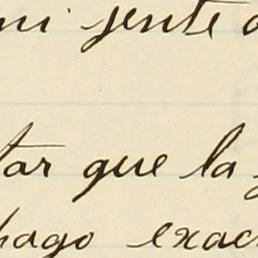 ni jente
tar que la
hago exac